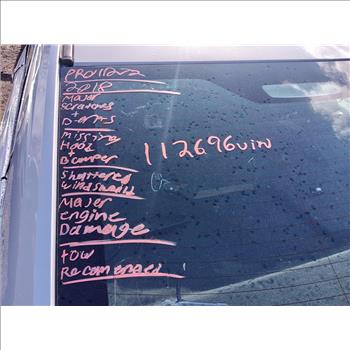 2018
Major
Scratches
+
Dents
Missing
Hood
+
Bumper
Shattered
windshield
Major
engine
Damage
tow
Recomended
112696vin